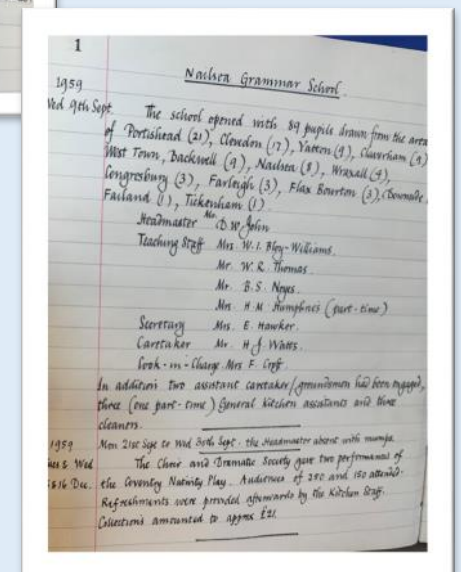 1
Nailsea Grammar School.
1959
Wed 9th Sept. The school opened with 89 pupils drawn from the area
of Portishead (21), Clevedon (17), Yatton (9), Claverham (9)
West Town, Backwell (9), Nailsea (8), Wraxall (9),
Congresbury (3), Farleigh (3), Flax Bourton (3), (Downside
Failand (1), Tickenham (1).
Headmaster Mr. D W John
Teaching Staff Mrs. W. I. Bloy-Williams.
Mr. W. R. Thomas.
Mr. B. S. Noyes.
Mrs. H. M. Humphries (part-time)
Secretary Mrs. E. Hawker.
Caretaker Mr. H. J. Watts.
Cook-in-Charge Mrs F. Croft.
In addition two assistant caretaker/groundsmen had been engaged,
three (one part-time) General kitchen assistants and three
cleaners.
1959 Mon 21st Sept to Wed 30th Sept. the Headmaster absent with mumps.
Tues & Wed The Choir and Dramatic Society gave two performances of
15 & 16 Dec. the Coventry Nativity Play. Audiences of 250 and 150 attended.
Refreshments were provided afterwards by the Kitchen Staff.
Collections amounted to approx £21.